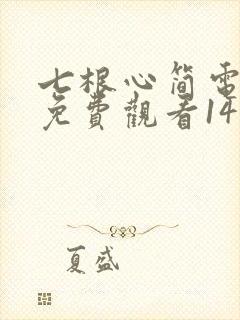 七根心简電
免費觀看14
夏盛